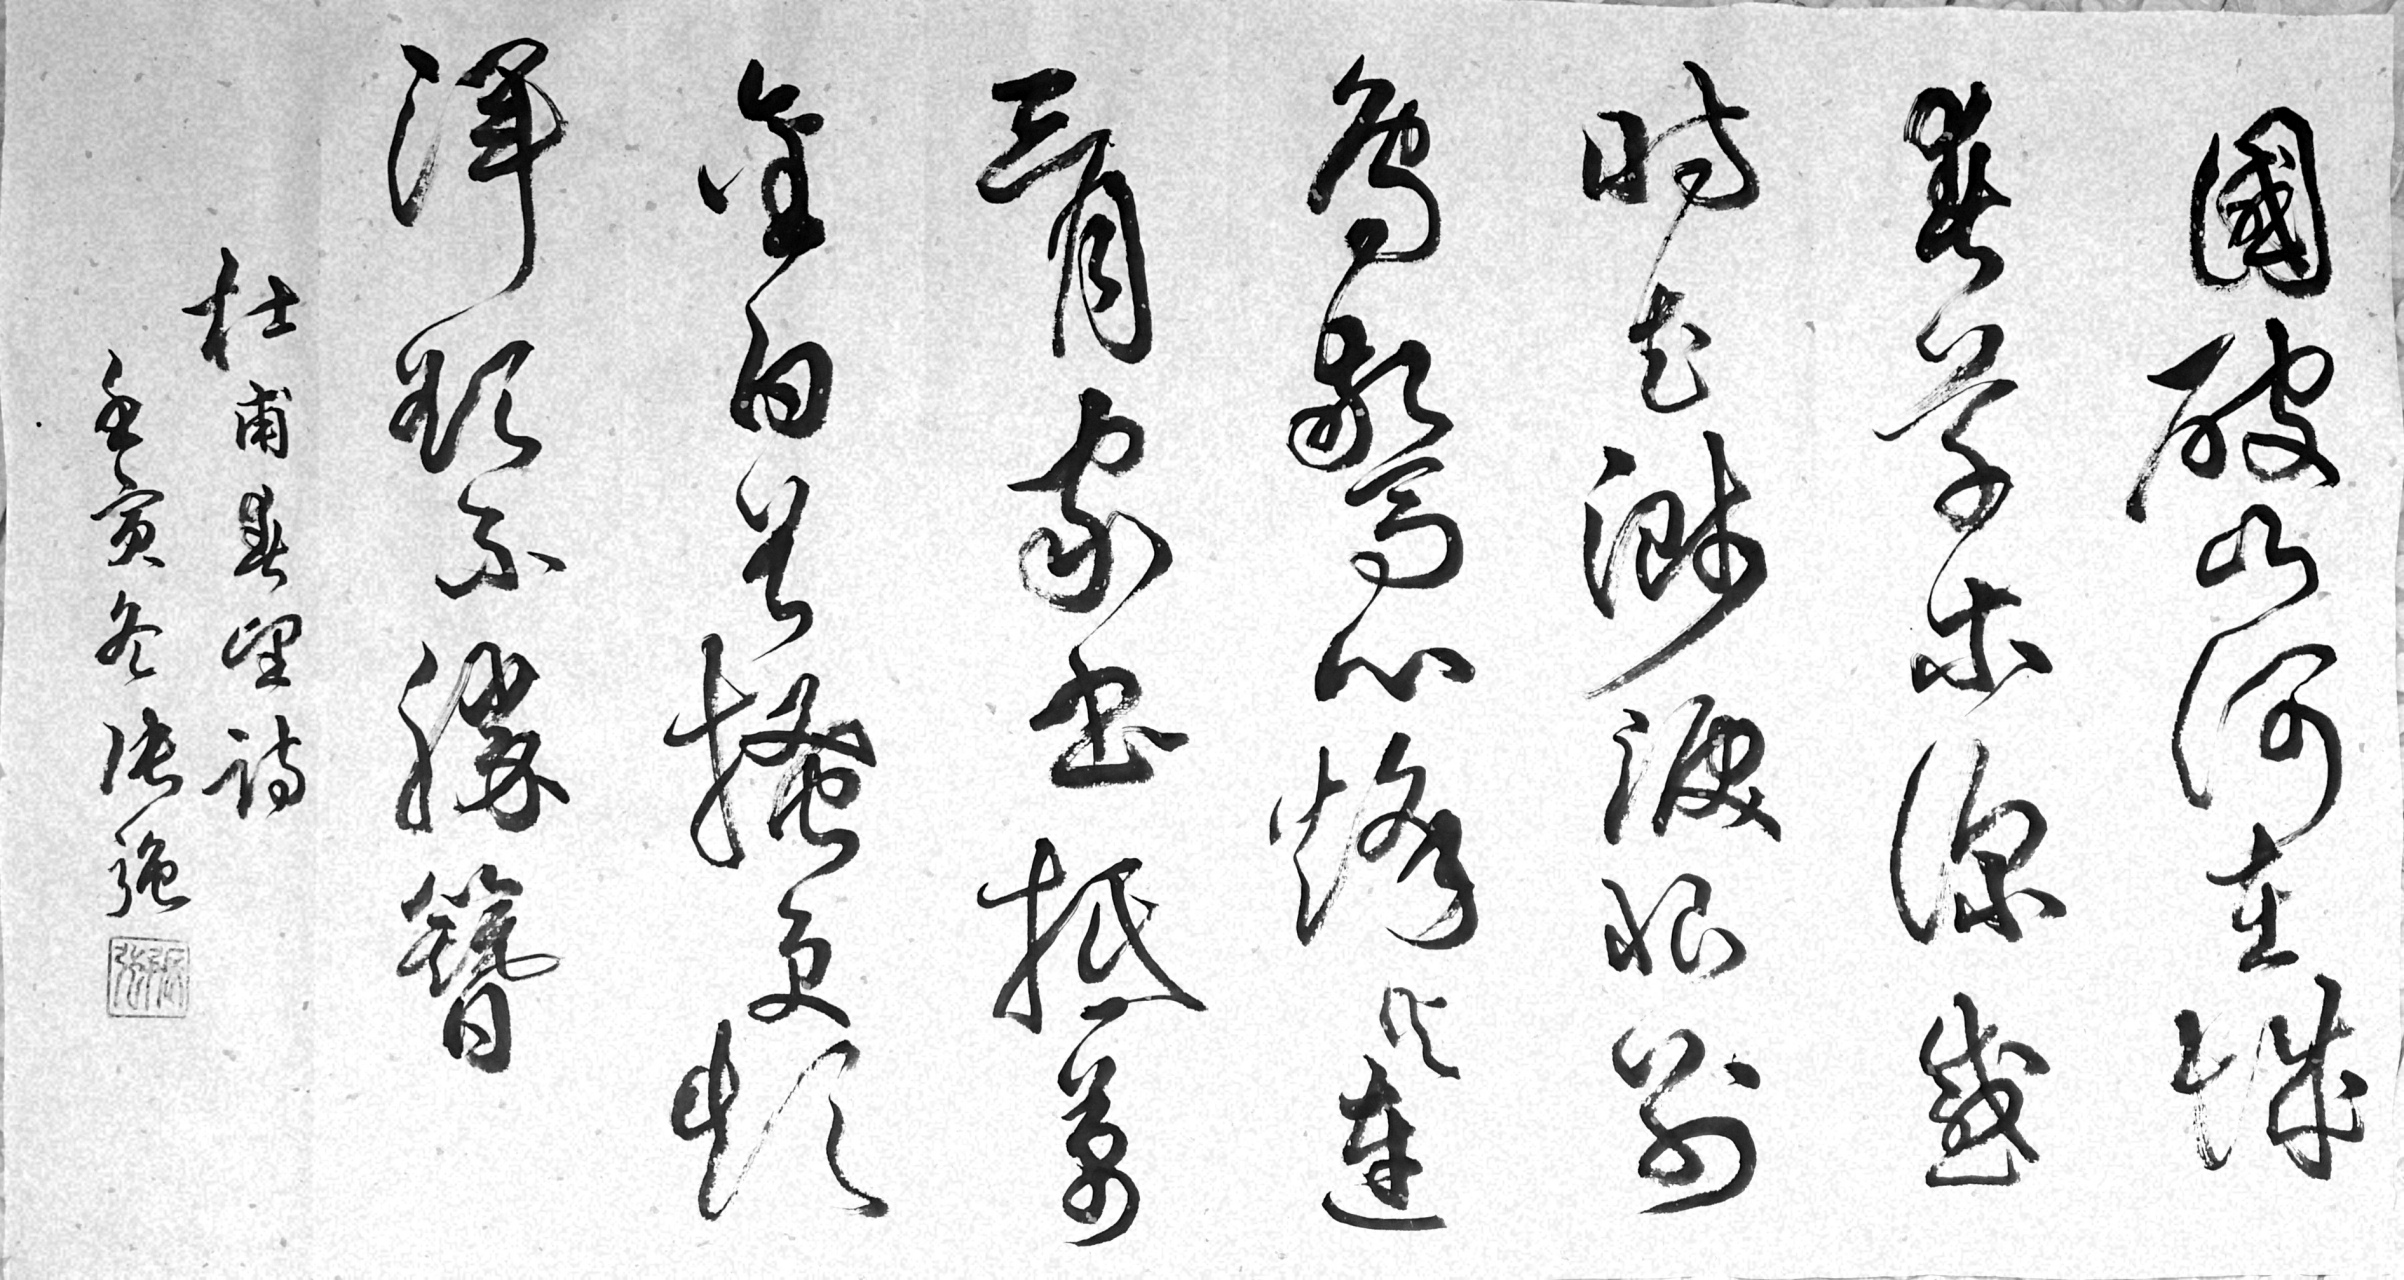 國破山河在城
春草木深感
時花濺淚恨別
鳥驚心烽火連
三月家書抵萬
金白首搔更短
渾欲不勝簪
杜甫春望詩
壬寅冬張強